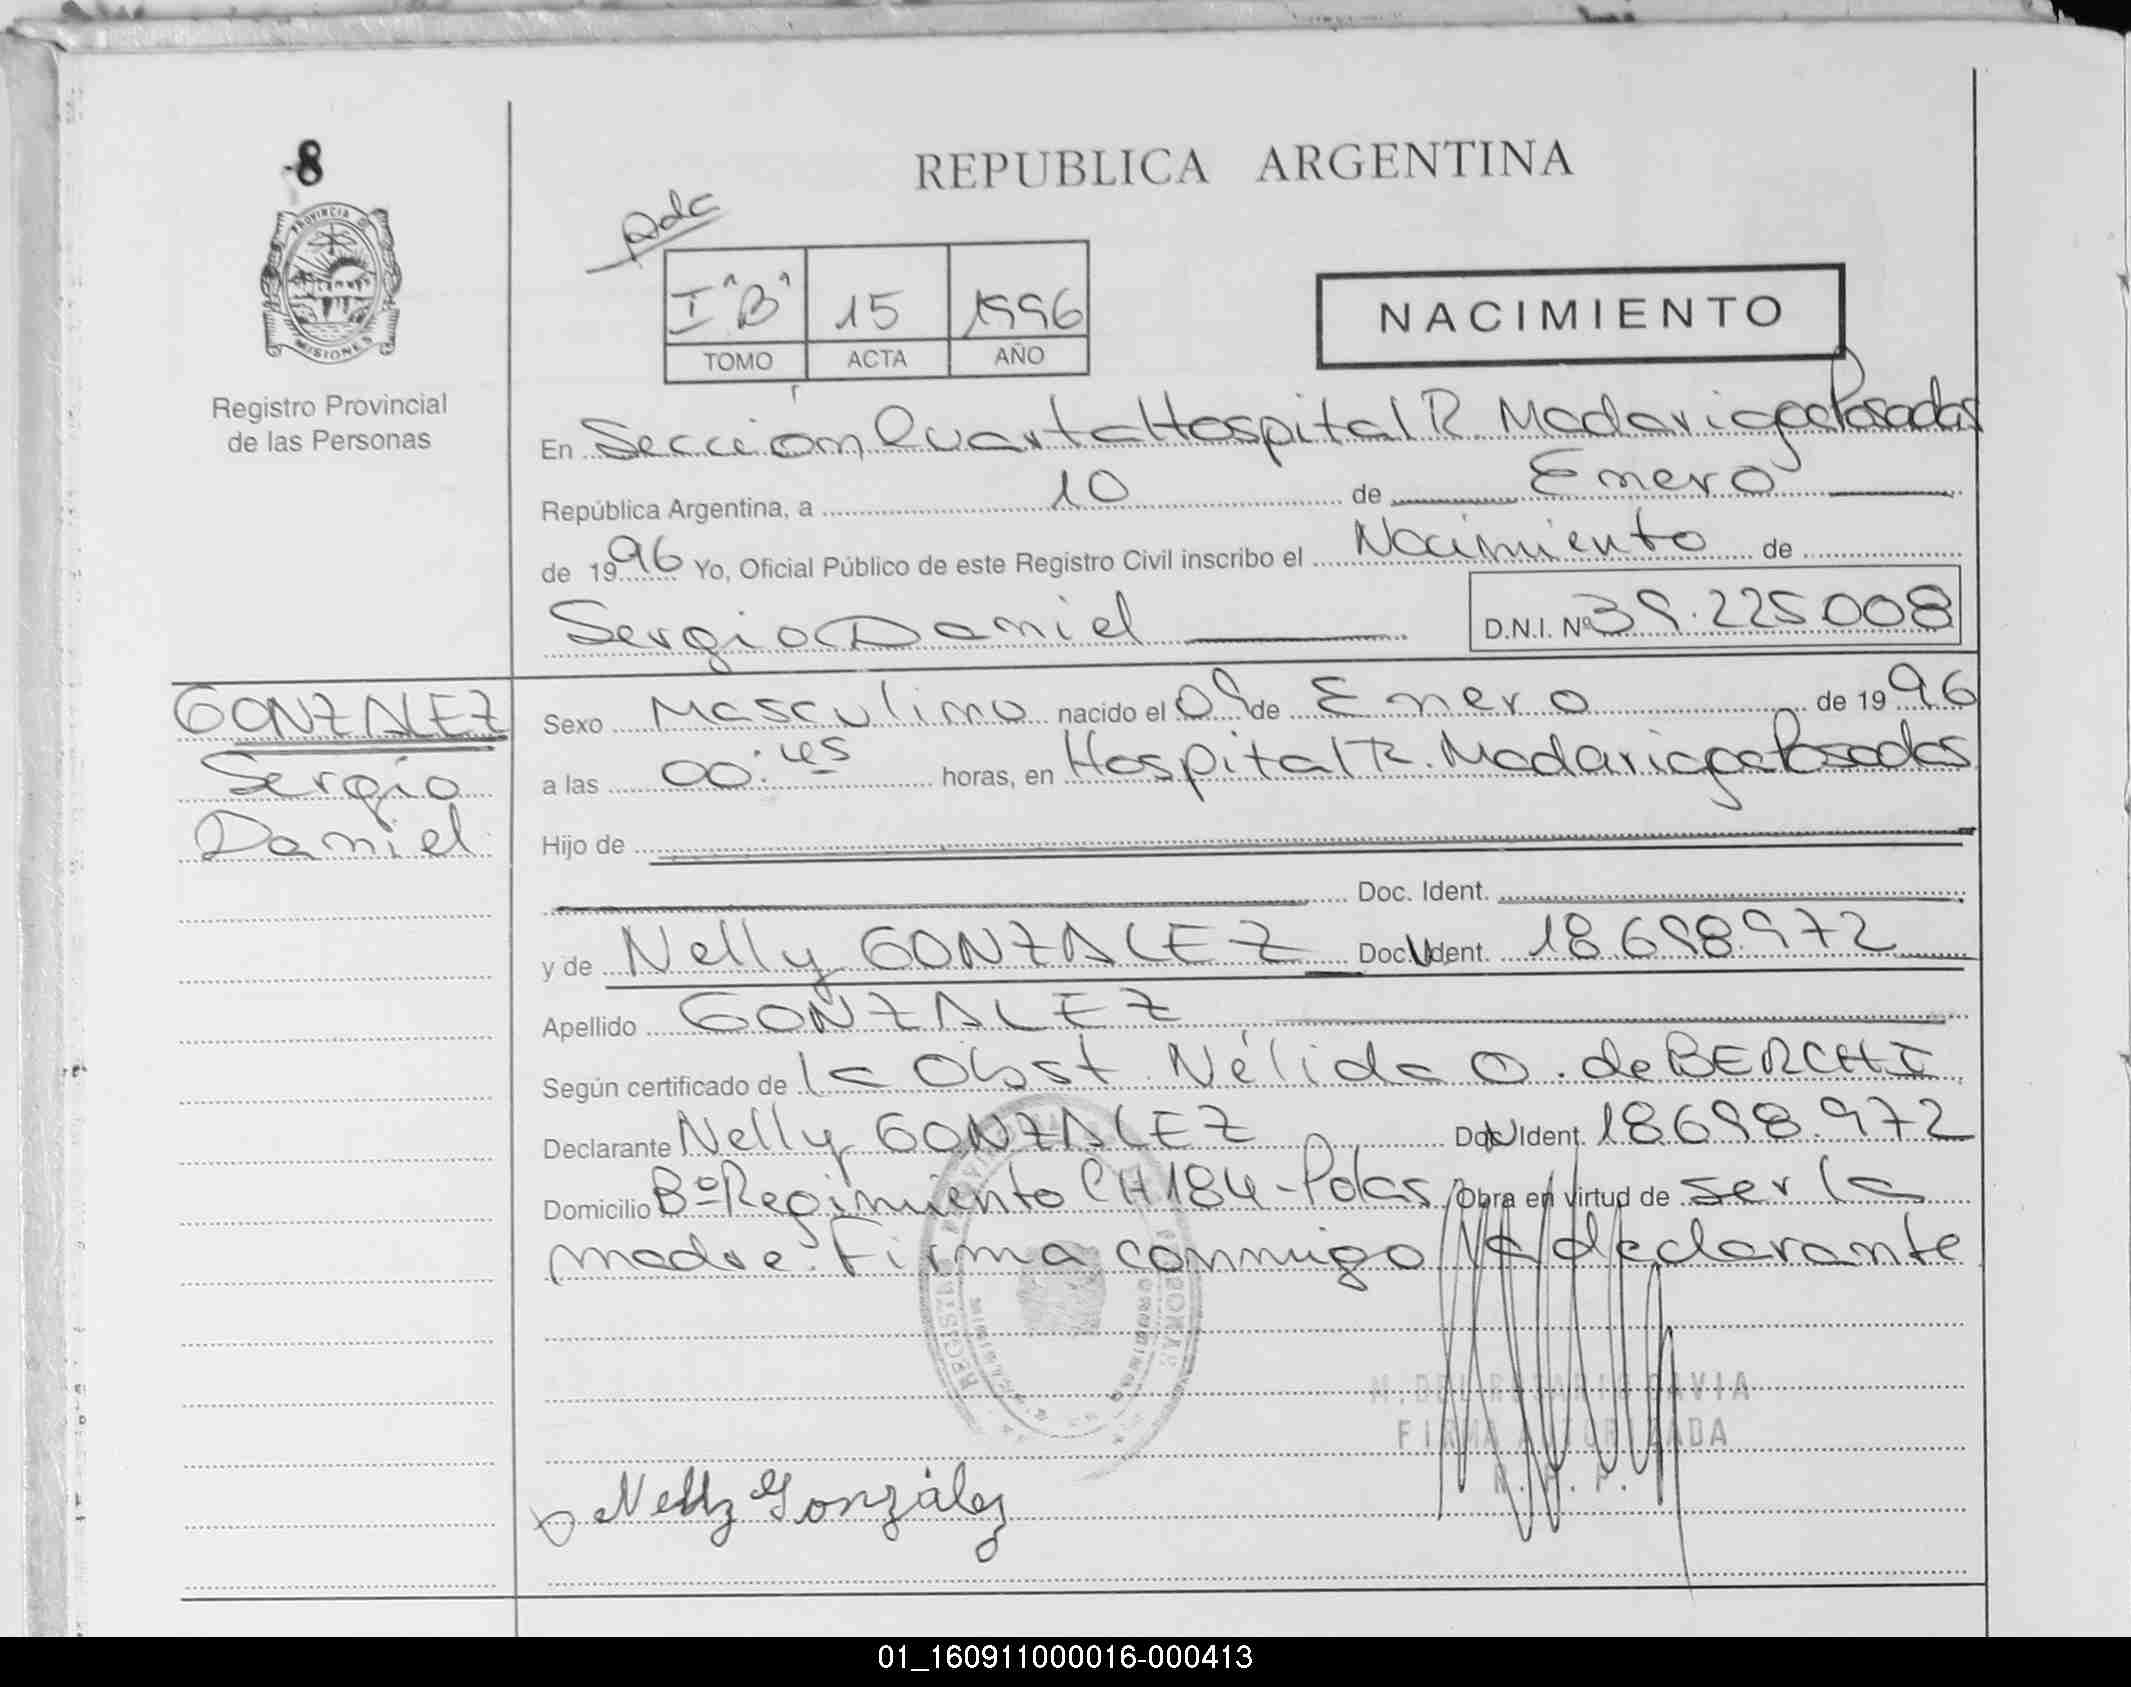 8
PROVINCIA DE
MISIONES
Registro Provincial
de las Personas
REPUBLICA ARGENTINA
I "B" 15 1996
TOMO ACTA AÑO
NACIMIENTO
En Sección Cuarta Hospital R. Madariaga Posadas
República Argentina, a 10 de Enero
de 1996 Yo, Oficial Público de este Registro Civil inscribo el Nacimiento de
Sergio Daniel D.N.I. Nº 39.225.008
GONZALEZ
Sergio
Daniel
Sexo Masculino nacido el 09 de Enero de 1996
a las 00:45 horas, en Hospital R. Madariaga Posadas
Hijo de
Doc. Ident.
y de Nelly GONZALEZ Doc. Ident. 18.698.972
Apellido GONZALEZ
Según certificado de la Obst. Nélida O. de BERCHI
Declarante Nelly GONZALEZ Doc. Ident. 18.698.972
Domicilio Bº Regimiento CH 184 - Pdas Obra en virtud de ser la
madre. Firma conmigo la declarante
M. DEL ROSARIO GAVIA
FIRMA AUTORIZADA
R. P. P.
Nelly González
01_160911000016-000413